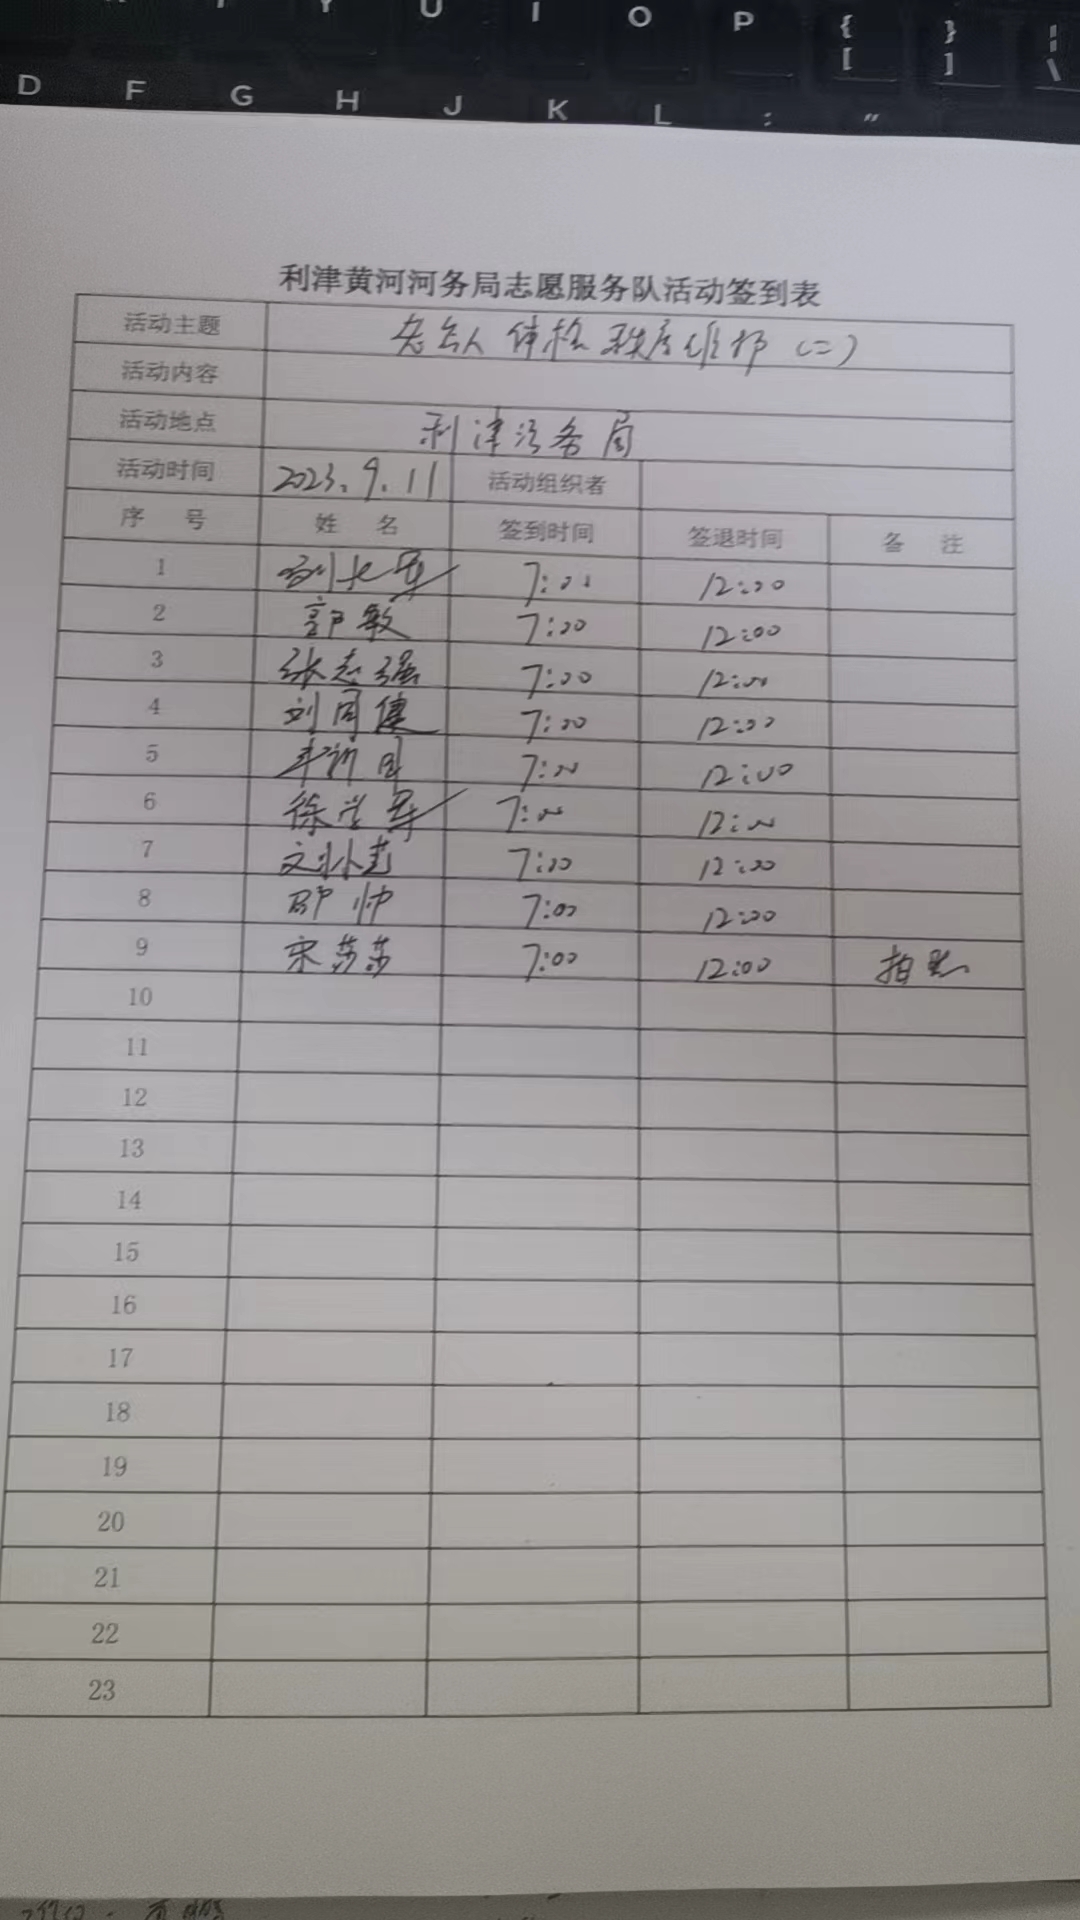 Y U I O P { }
[ ] \
D F G H J K L : "
利津黄河河务局志愿服务队活动签到表
活动主题 老年人体检秩序维护（二）
活动内容
活动地点 利津河务局
活动时间 2023.9.11 活动组织者
序 号 姓 名 签到时间 签退时间 备 注
1 7:00 12:00
2 郭敏 7:00 12:00
3 张志强 7:00 12:00
4 刘同健 7:00 12:00
5 7:00 12:00
6 徐学军 7:00 12:00
7 7:00 12:00
8 邵帅 7:00 12:00
9 宋莎莎 7:00 12:00 拍照
10
11
12
13
14
15
16
17
18
19
20
21
22
23